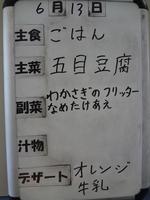 6月13日
主食 ごはん
主菜 五目豆腐
副菜 わかさぎのフリッター
なめたけあえ
汁物
デザート オレンジ
牛乳